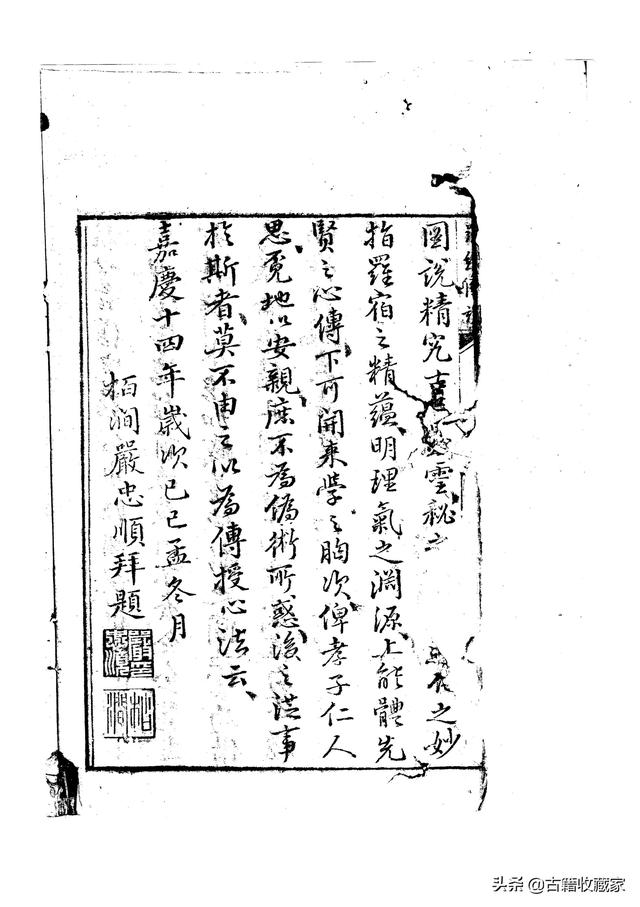 圖說精究
雲秘
之妙
指羅宿之精蘊明理氣之淵源上能體先
賢之心傳下可開來學之胸次俾孝子仁人
思覓地以安親庶不為偽術所惑後之從事
於斯者莫不由之以為傳授心法云
嘉慶十四年歲次己巳孟冬月
栢澗嚴忠順拜題
嚴印忠順
栢澗
头条@古籍收藏家